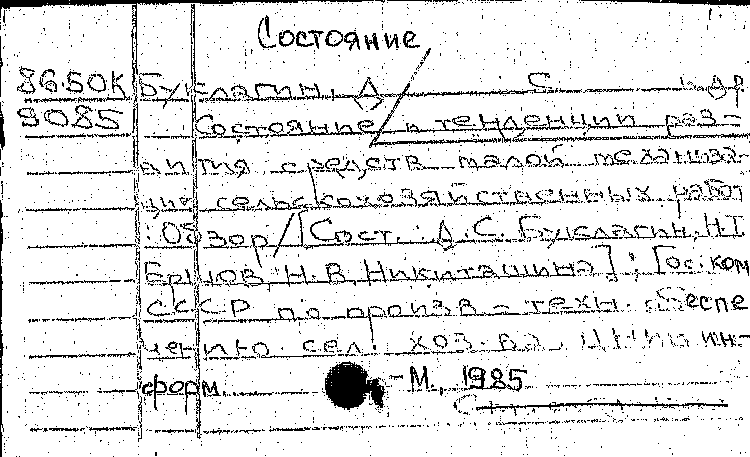 Состояние
86.50К Буклагин, Д С. и др
9085 Состояние и тенденции раз-
вития средств малой механиза-
ции сельскохозяйственных работ
: Обзор/[Сост. Д.С. Буклагин, Н.Т.
Ершов, Н.В. Никиташина]; Гос. ком
СССР по произв-техн. обеспе
чению сел. хоз-ва, ЦНИИ ин-
форм. -М., 1985